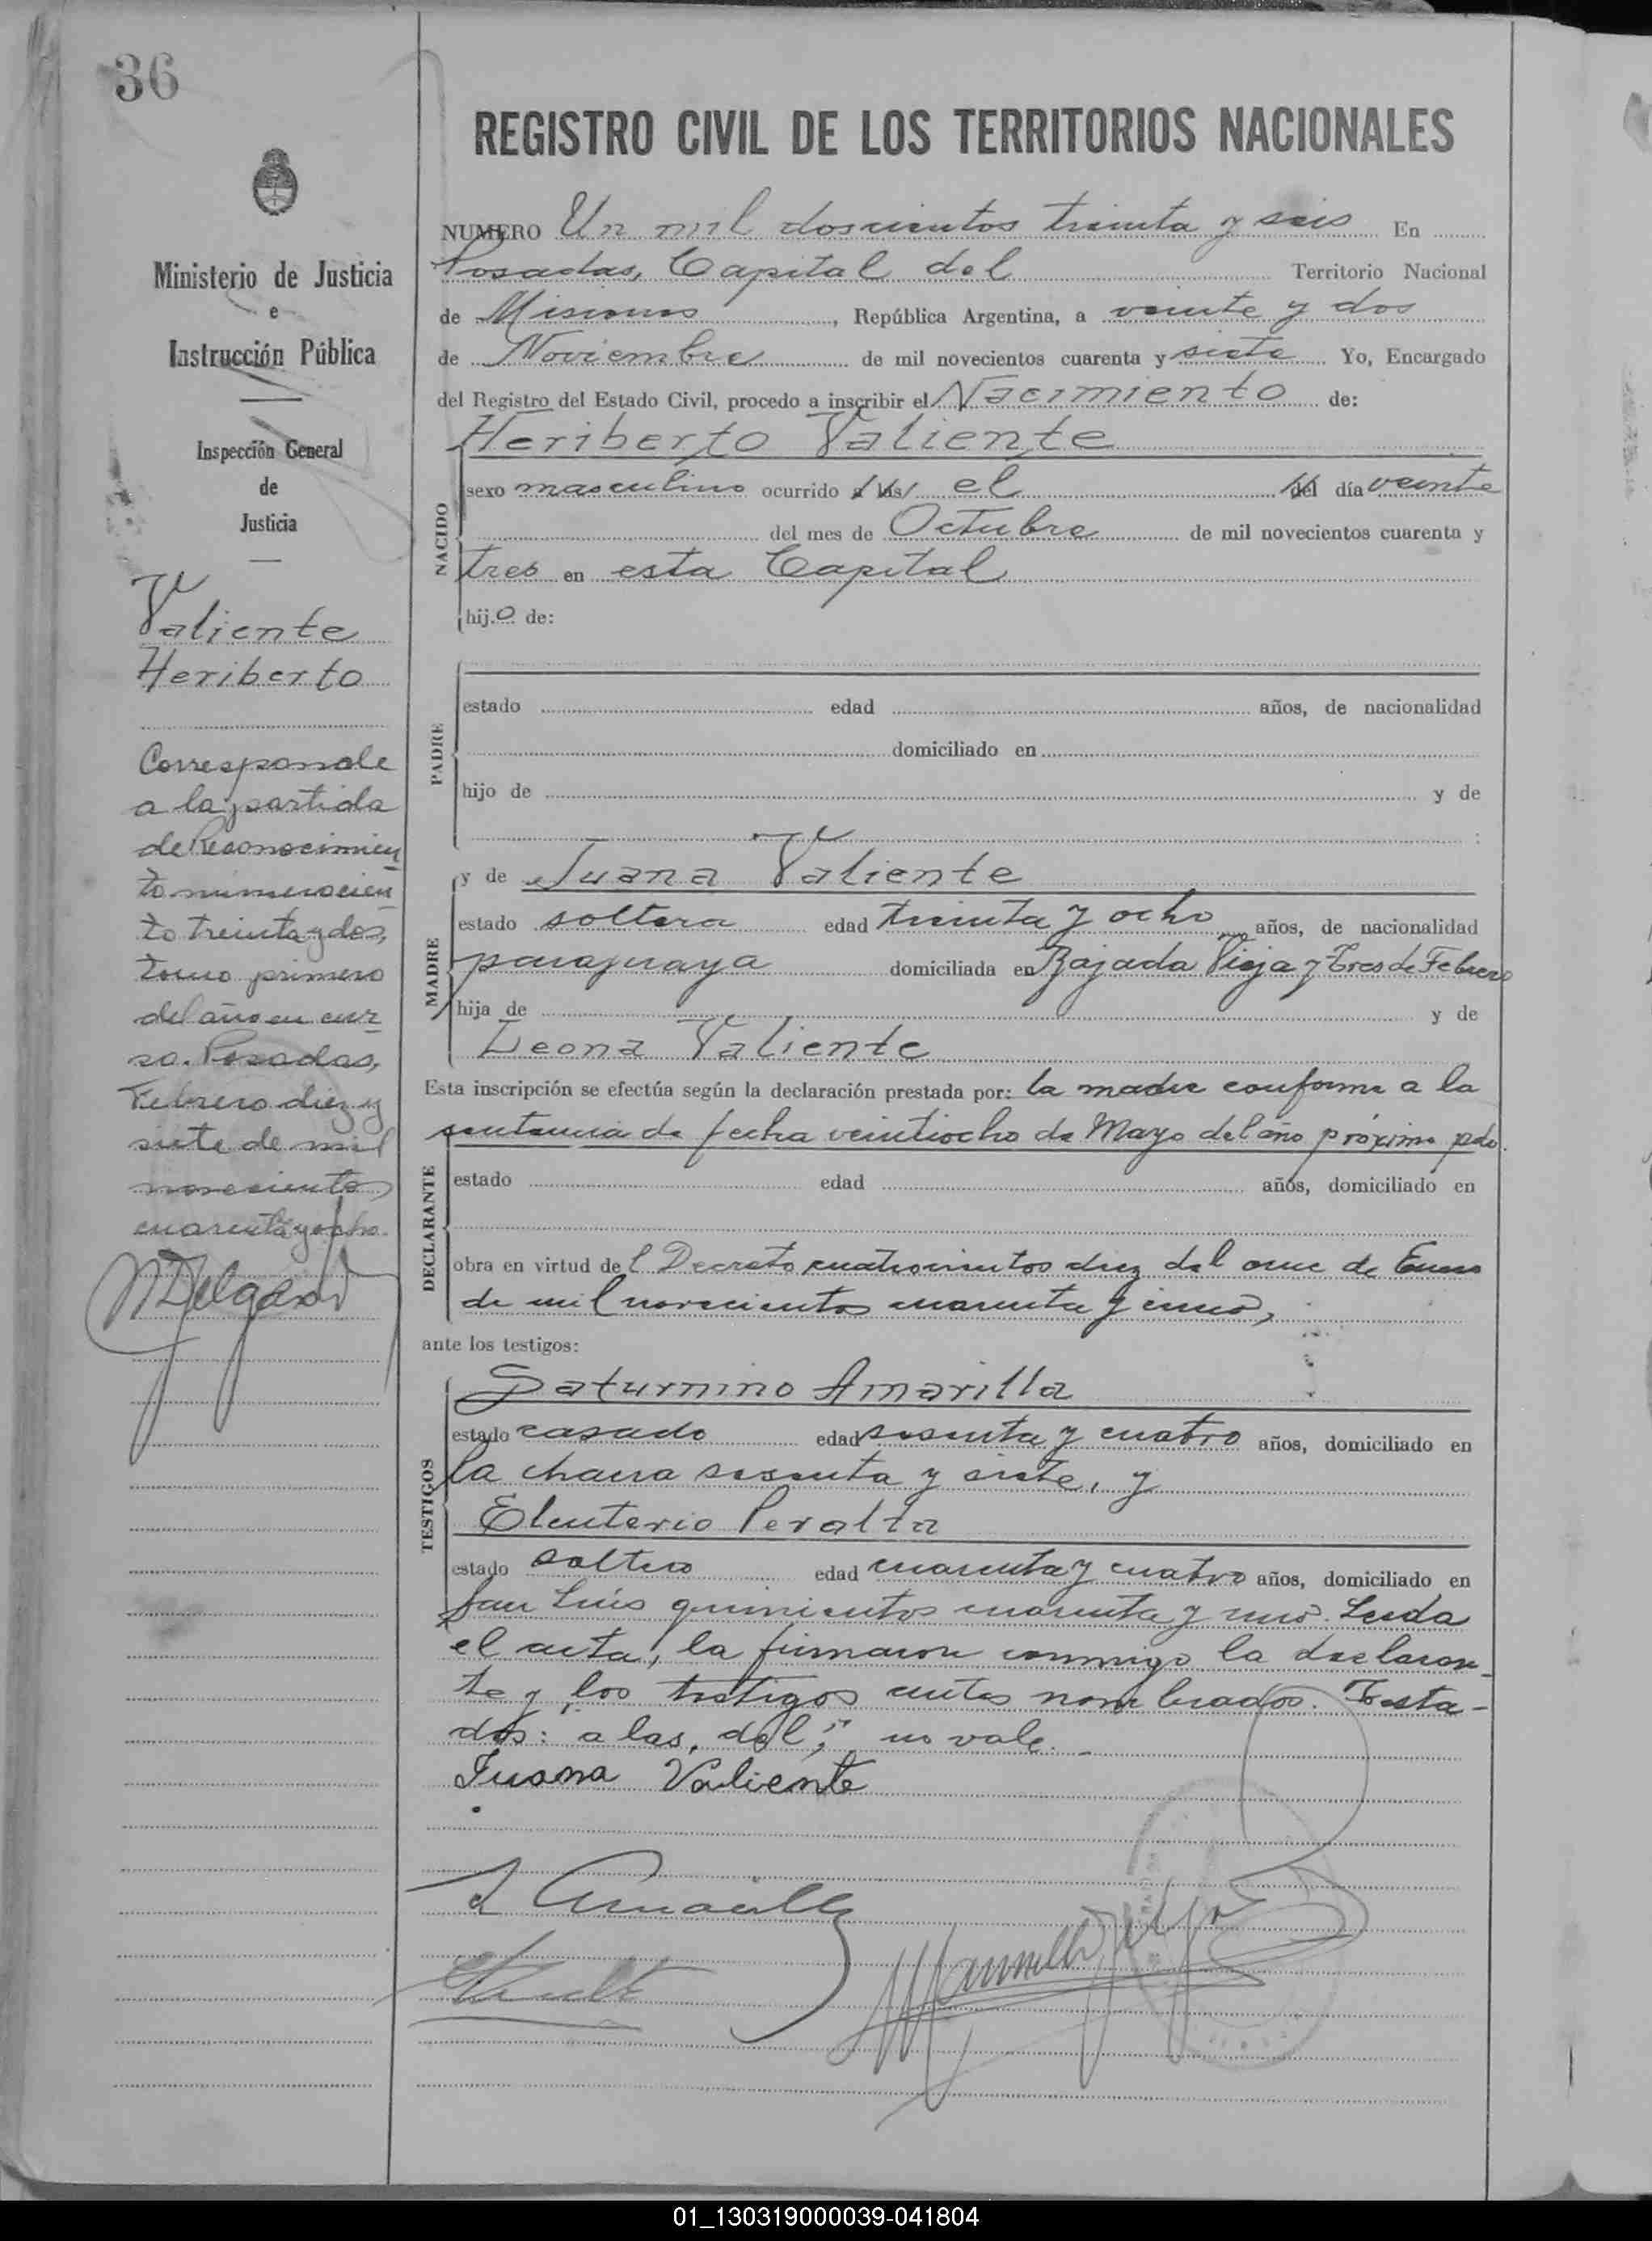 36
Ministerio de Justicia
e
Instrucción Pública
Inspección General
de
Justicia
Valiente
Heriberto
Corresponde
a la partida
de Reconocimien
to número cien
to treinta y dos,
tomo primero
del año en cur
so. Posadas,
Febrero diez y
siete de mil
novecientos
cuarenta y ocho.
REGISTRO CIVIL DE LOS TERRITORIOS NACIONALES
NUMERO Un mil doscientos treinta y seis En
Posadas, Capital del Territorio Nacional
de Misiones, República Argentina, a veinte y dos
de Noviembre de mil novecientos cuarenta y siete Yo, Encargado
del Registro del Estado Civil, procedo a inscribir el Nacimiento de:
Heriberto Valiente
NACIDO
sexo masculino ocurrido a las el del día veinte
del mes de Octubre de mil novecientos cuarenta y
tres en esta Capital
hijo de:
PADRE
estado edad años, de nacionalidad
domiciliado en
hijo de y de
:
MADRE
y de Juana Valiente
estado soltera edad treinta y ocho años, de nacionalidad
paraguaya domiciliada en Bajada Vieja y Tres de Febrero
hija de y de
Leona Valiente
Esta inscripción se efectúa según la declaración prestada por: la madre conforme a la
sentencia de fecha veintiocho de Mayo del año próximo pdo.
DECLARANTE
estado edad años, domiciliado en
obra en virtud del Decreto cuatrocientos diez del once de Enero
de mil novecientos cuarenta y cinco,
ante los testigos:
TESTIGOS
Saturnino Amarilla
estado casado edad sesenta y cuatro años, domiciliado en
la chacra sesenta y siete, y
Eleuterio Peralta
estado soltero edad cuarenta y cuatro años, domiciliado en
San Luis quinientos cuarenta y uno. Leída
el acta, la firmaron conmigo la declaran-
te y los testigos antes nombrados. Testa-
dos: "a las, del", no vale.
Juana Valiente
01_130319000039-041804